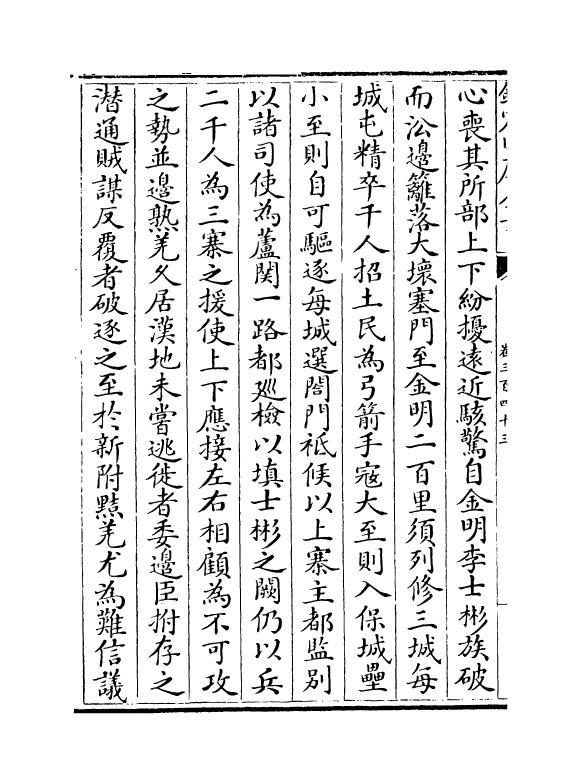 心喪其所部上下紛擾遠近駭驚自金明李士彬族破
而㳂邊籬落大壞塞門至金明二百里須列修三城每
城屯精卒千人招土民為弓箭手寇大至則入保城壘
小至則自可驅逐每城選閤門祗候以上寨主都監别
以諸司使為蘆関一路都廵檢以填士彬之闕仍以兵
二千人為三寨之援使上下應接左右相顧為不可攻
之勢並邊熟羌久居漢地未嘗逃徙者委邊臣拊存之
潜通賊謀反覆者破逐之至於新附黠羌尤為難信議
卷三百四十三